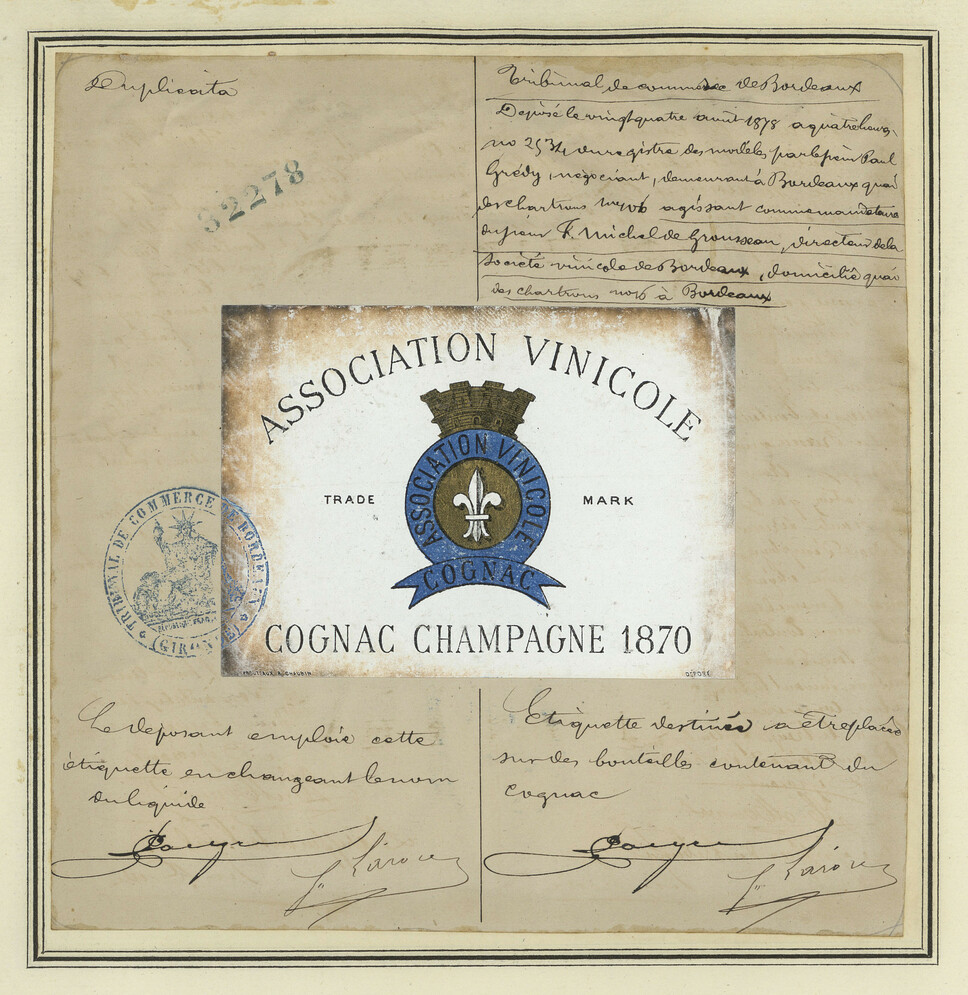 Duplicata
32278
Tribunal de commerce de Bordeaux
Déposé le vingt quatre août 1878 a quatre heures,
no 2534 du registre des modèles par le sieur Paul
Grédy, négociant, demeurant à Bordeaux quai
des chartrons no 106 agissant comme mandataire
du sieur F. Michel de Grousseau, directeur de la
Société vinicole de Bordeaux, domicilié quai
des chartrons no à Bordeaux
ASSOCIATION VINICOLE
ASSOCIATION VINICOLE
TRADE MARK
COGNAC
COGNAC CHAMPAGNE 1870
TRIBUNAL DE COMMERCE DE BORDEAUX
(GIRONDE)
Le déposant emploie cette
étiquette en changeant le nom
du liquide
Etiquette destinée a être placée
sur des bouteilles contenant du
Cognac